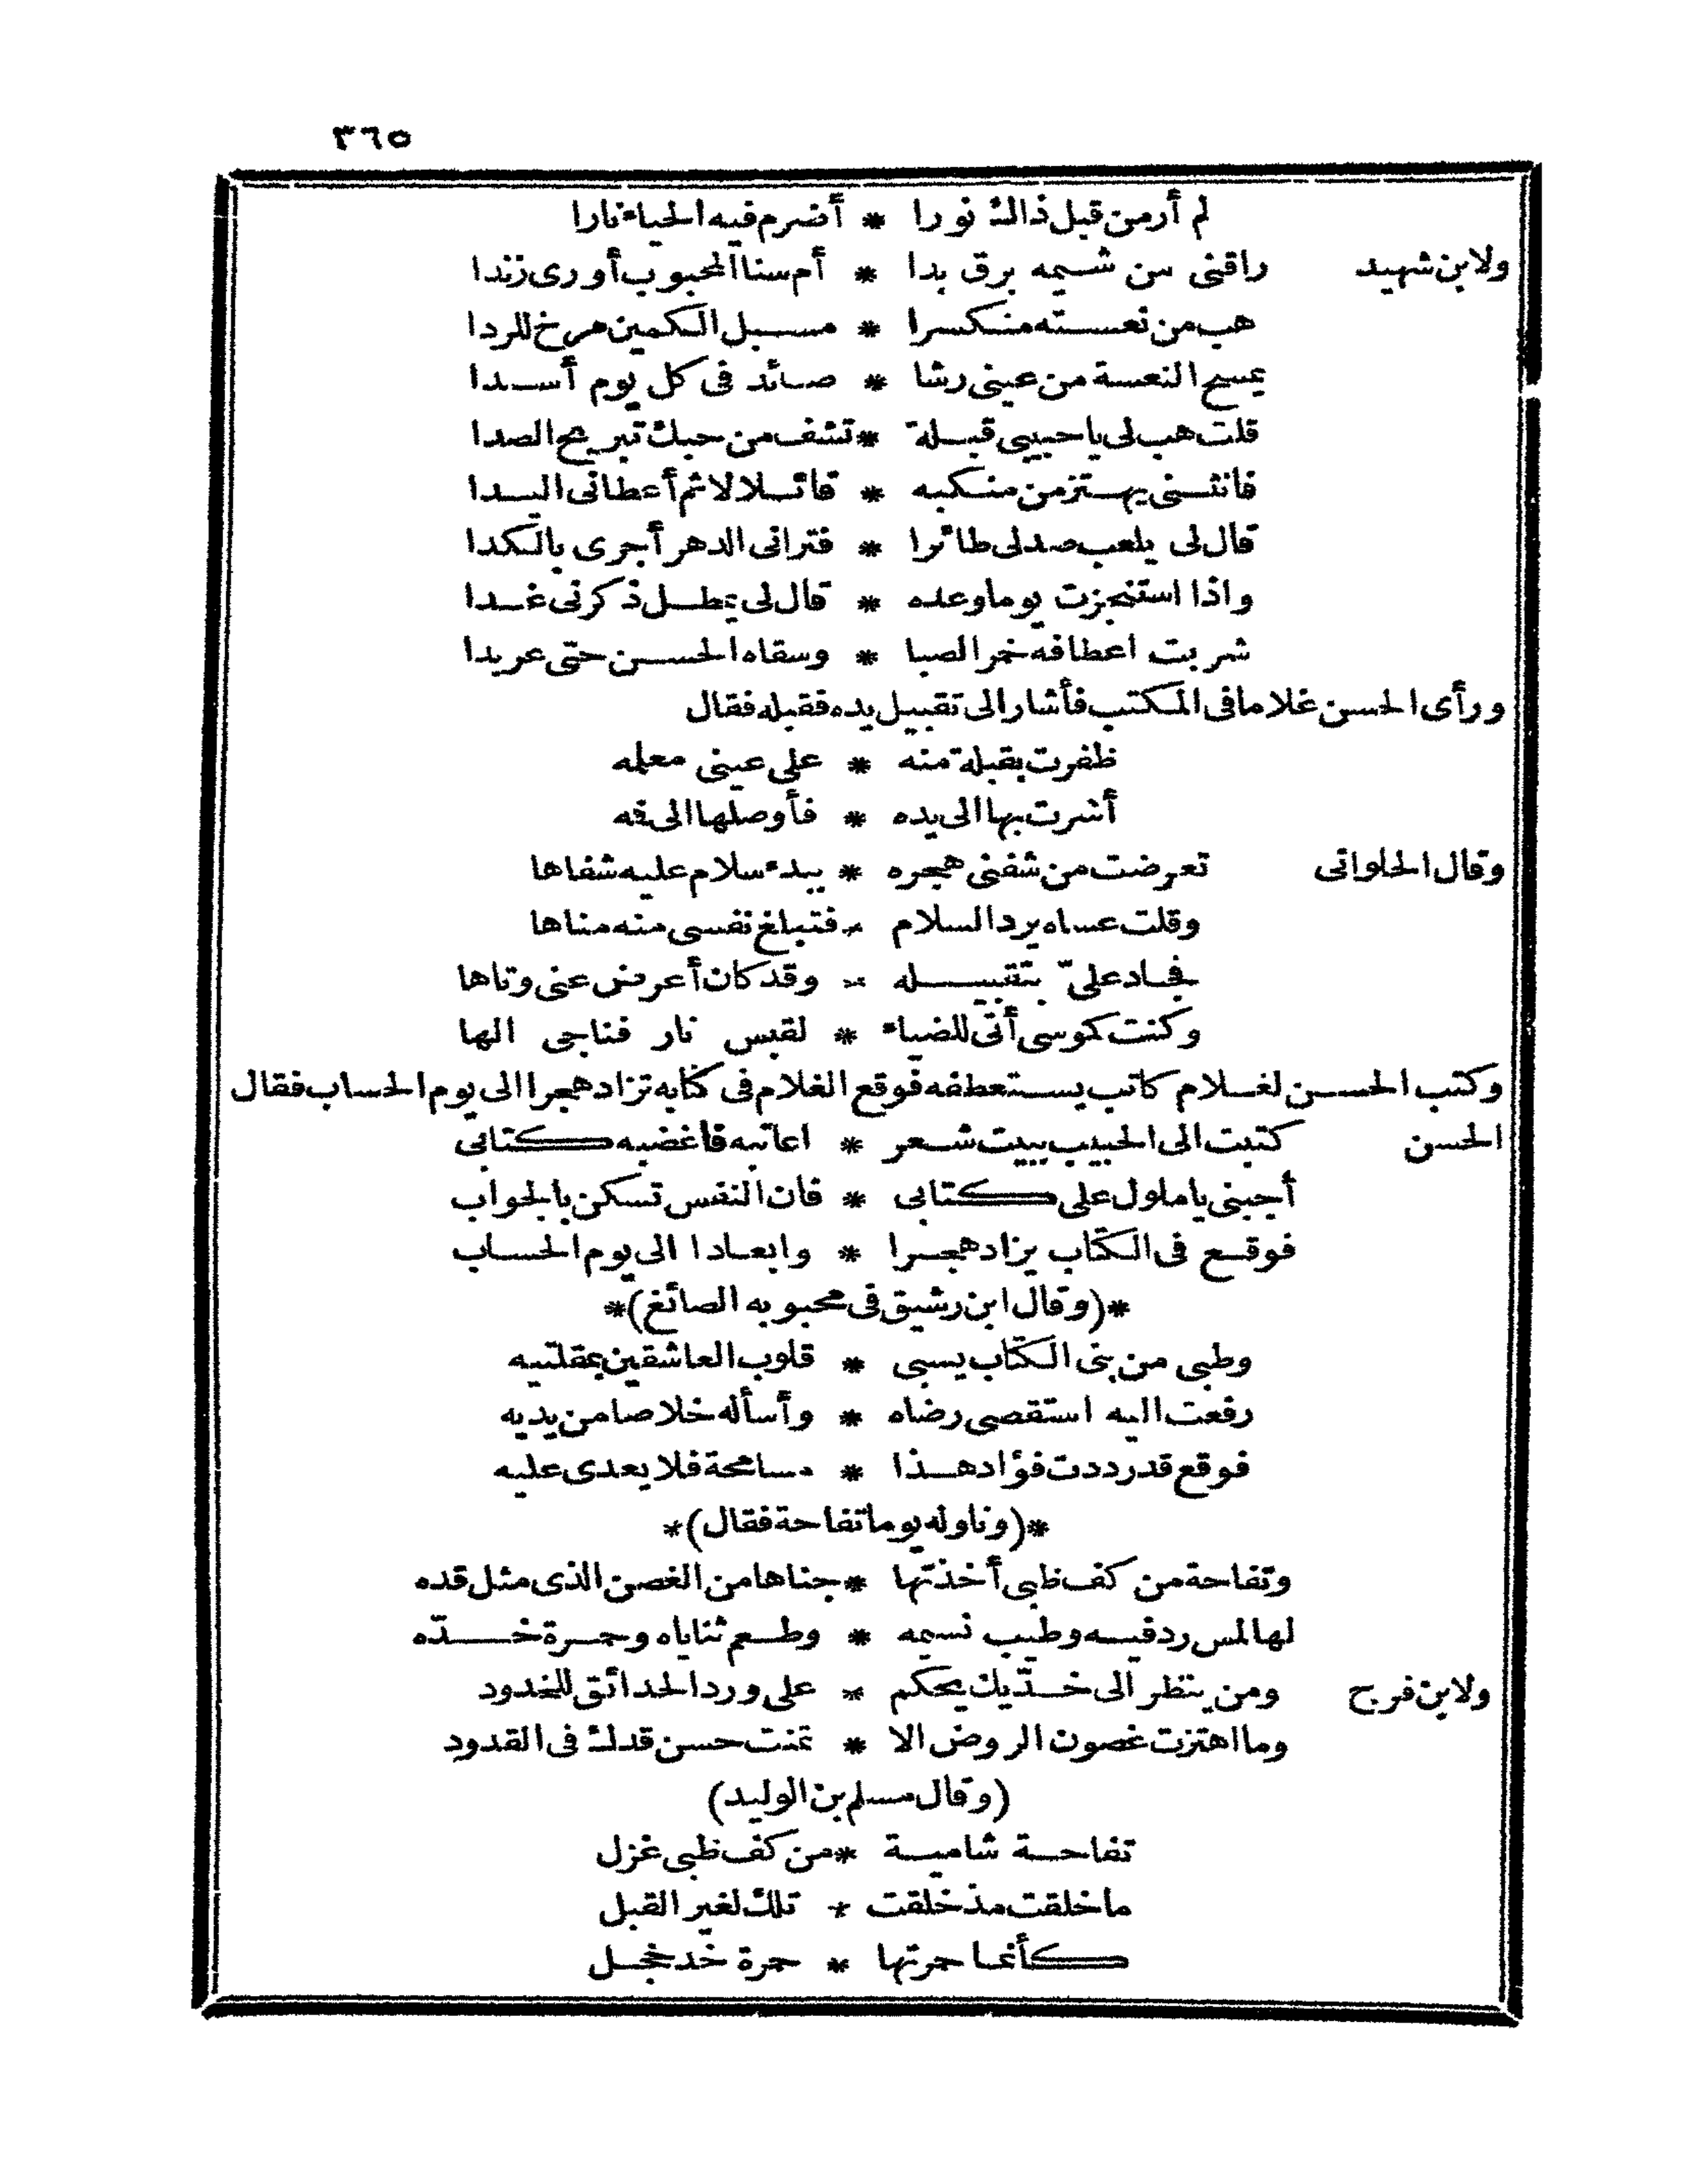 ٣٦٥
لم أرمن قبل ذالك نورا * أضرم فيه الحياء نارا
ولابن شهيد راقنى من شيمه برق بدا * أم سنا المحبوب أورى زندا
هب من نعسته منكسرا * مسبل الكمين مرخ للردا
يمسح النعسة من عينى رشا * صائد فى كل يوم أسدا
قلت هب لى يا حبيبى قبلة * تشف من حبك تبريح الصدا
فانثنى يهتز من منكبه * قائلا لا ثم أعطانى اليدا
قال لى يلعب صدلى طائرا * فترانى الدهر أجرى بالكدا
واذا استنجزت يوما وعده * قال لى يمطل ذكرنى غدا
شربت اعطافه خمر الصبا * وسقاه الحسن حتى عربدا
ورأى الحسن غلاما فى المكتب فأشار الى تقبيل يده فقبله فقال
ظفرت بقبلة منه * على عينى معلمه
أشرت بها الى يده * فأوصلها الى فه
وقال الحلوانى تعرضت من شفنى هجره * ببدء سلام عليه شفاها
وقلت عساه يرد السلام * فتبلغ نفسى منه مناها
فجاد علىّ بتقبيله * وقد كان أعرض عنى وتاها
وكنت كموسى أتى للضياء * لقبس نار فناجى الها
وكتب الحسن لغلام كاتب يستعطفه فوقع الغلام فى كتابه تزاد هجرا الى يوم الحساب فقال
الحسن كتبت الى الحبيب ببيت شعر * اعاتبه فاغضبه كتابى
أجبنى يا ملول على كتابى * فان النفس تسكن بالجواب
فوقع فى الكتاب يزاد هجرا * وابعادا الى يوم الحساب
*(وقال ابن رشيق فى محبوبه الصائغ)*
وظبى من بنى الكتاب يسبى * قلوب العاشقين بمقلتيه
رفعت اليه استقصى رضاه * وأسأله خلاصا من يديه
فوقع قد رددت فؤاد هذا * مسامحة فلا يعدى عليه
*(وناوله يوما تفاحة فقال)*
وتفاحة من كف ظبى أخذتها * جناها من الغصن الذى مثل قده
لها لمس ردفيه وطيب نسيمه * وطعم ثناياه وحمرة خدّه
ولابن فرج ومن ينظر الى خدّيك يحكم * على ورد الحدائق للخدود
وما اهتزت غصون الروض الا * تمنت حسن قدك فى القدود
(وقال مسلم بن الوليد)
تفاحة شامية * من كف ظبى غزل
ما خلقت مذ خلقت * تلك لغير القبل
كأنما حمرتها * حمرة خد خجل